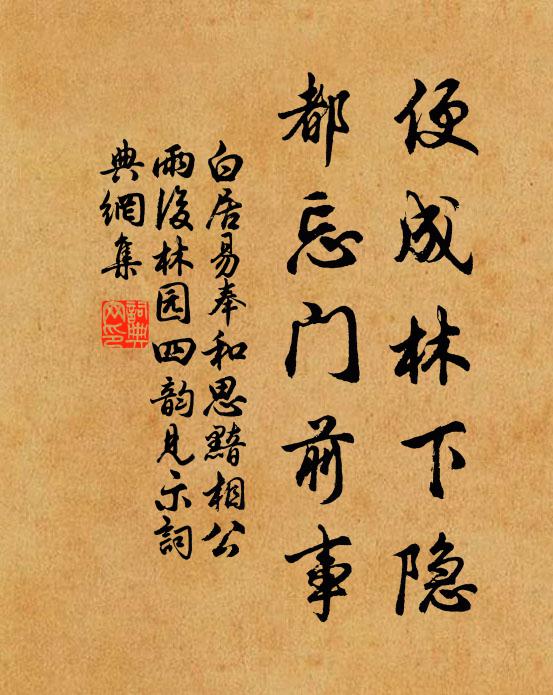 便成林下隐
都忘门前事
白居易奉和思黯相公
雨后林园四韵见示词
典網集
詞典
网印